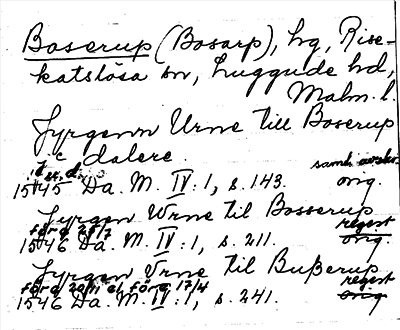 Boserup (Bosarp), hg, Rise-
katslösa sn, Luggude hd,
Malm. l.
Jyrgenn Urne till Boserup
dalere.
samt. avskr.
1545 Da. M. IV:1, s. 143. orig.
Jyrgen Wrne til Bosserup
före 28/7 regest
1546 Da. M. IV:1, s. 211. orig.
Jyrgen Vrne til Bußerup
före 20/11 el. före 17/4 regest
1546 Da. M. IV:1, s. 241. orig.